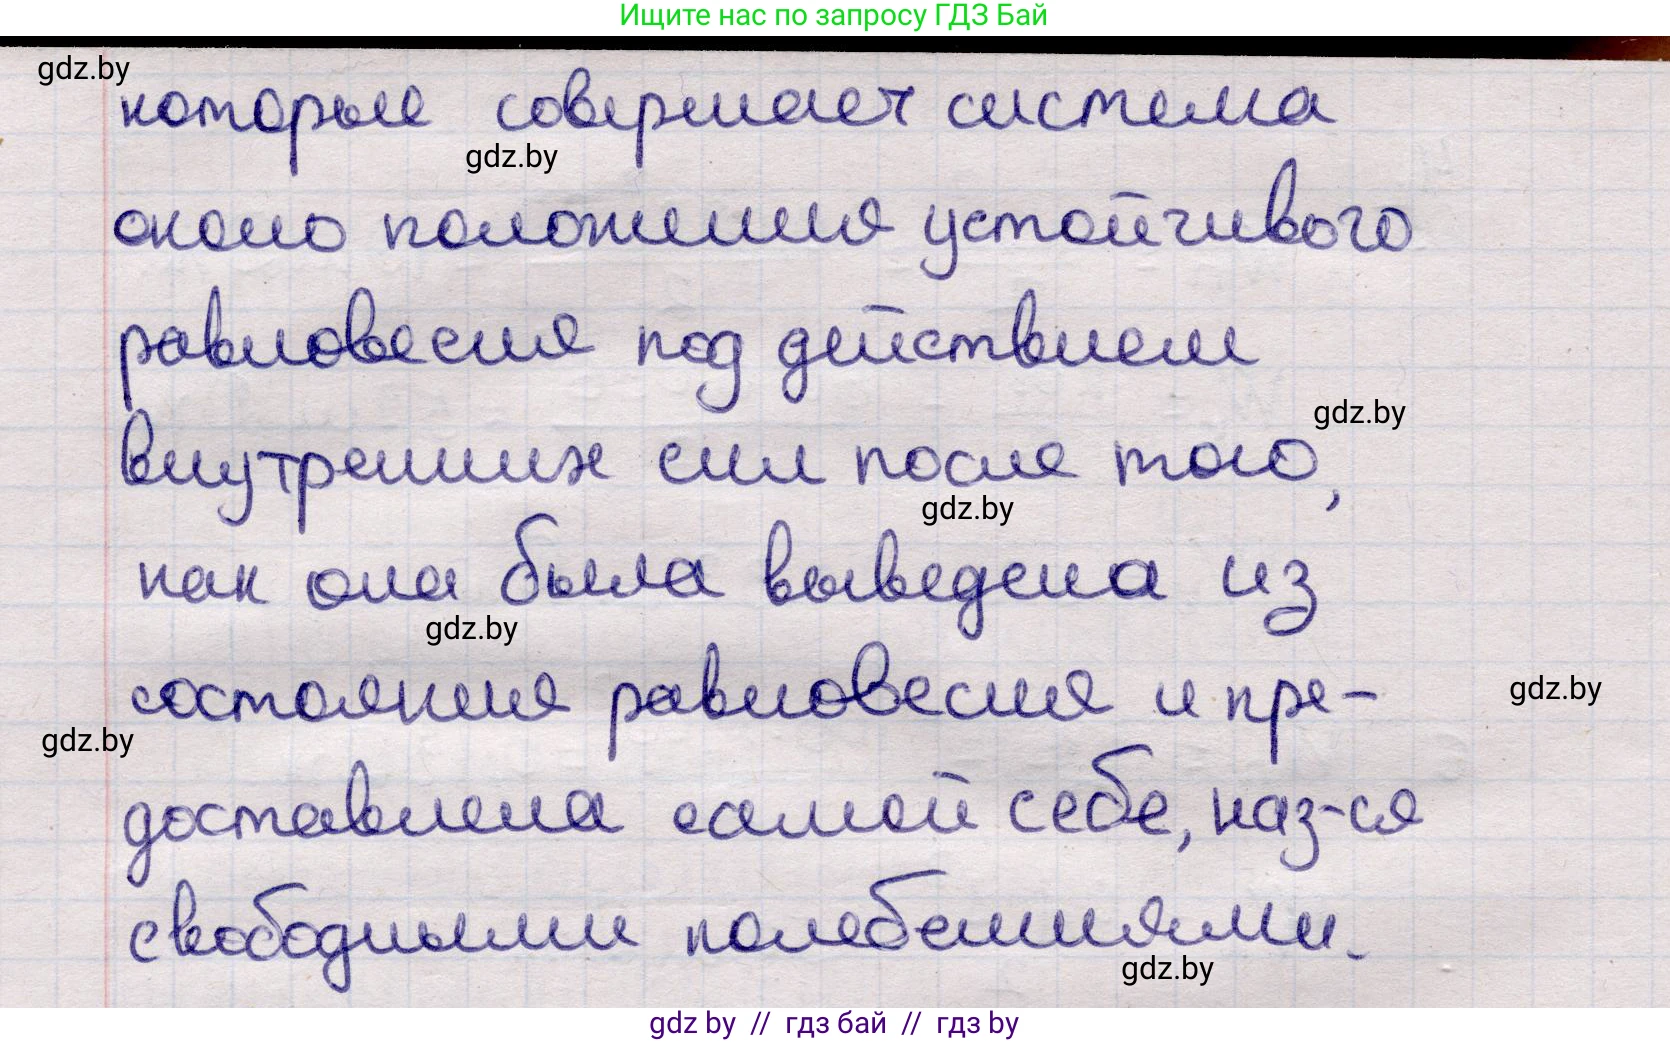 Ищите нас по запросу ГДЗ Бай
gdz.by
которые совершает система
gdz.by
около положения устойчивого
равновесия под действием
gdz.by
внутренних сил после того,
gdz.by
как она была выведена из
gdz.by
состояния равновесия и пре-
gdz.by
gdz.by
доставлена самой себе, наз-ся
свободными колебаниями.
gdz.by
gdz by // гдз бай // гдз by